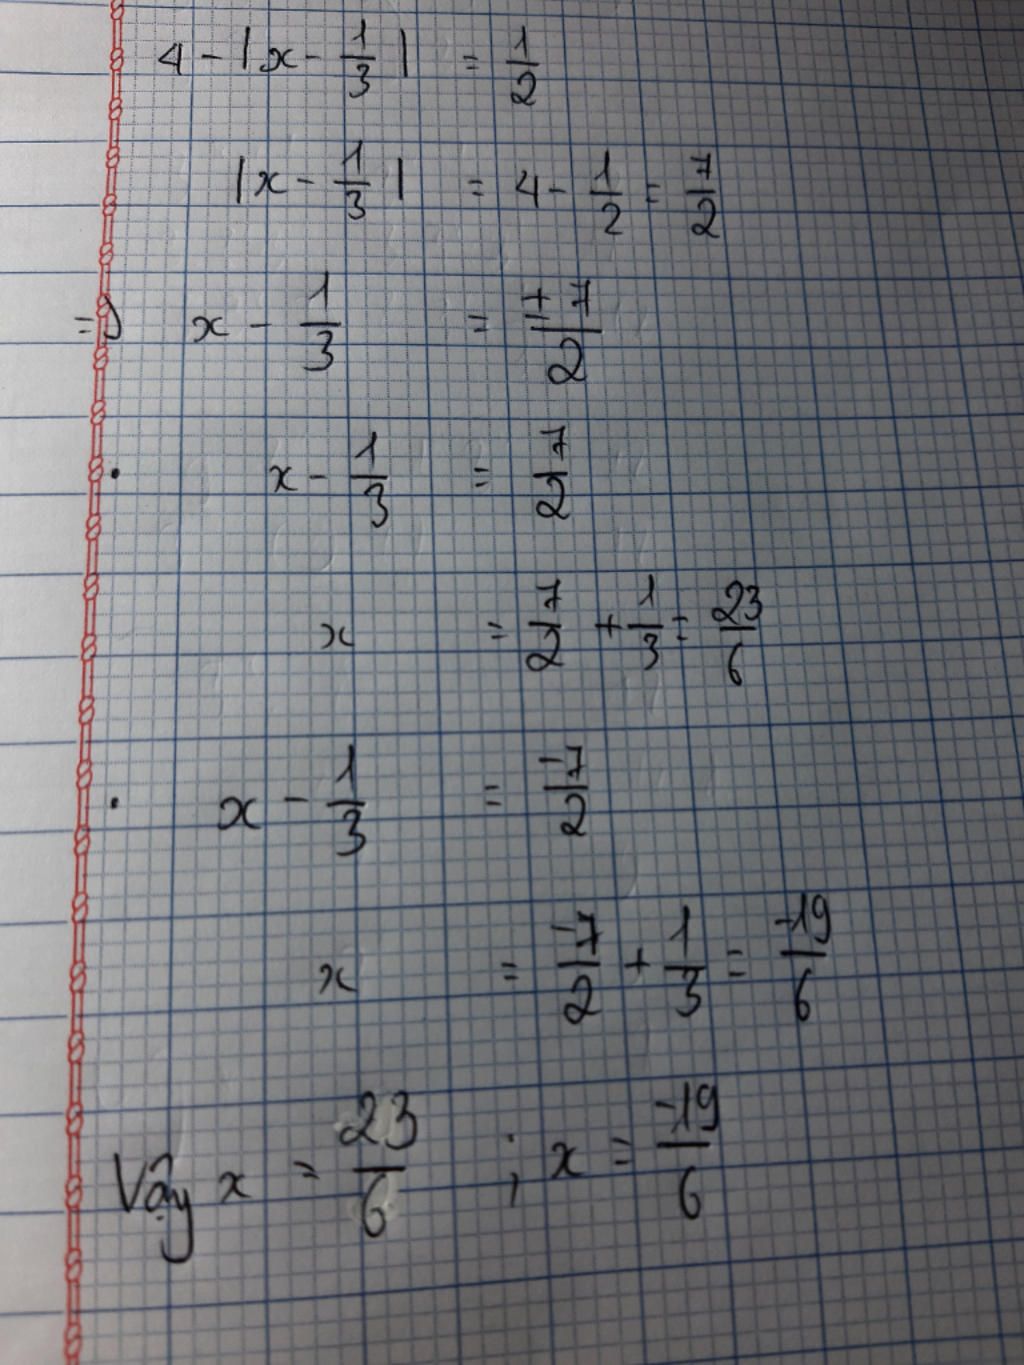 4 - |x - 1/3| = 1/2
|x - 1/3| = 4 - 1/2 = 7/2
=> x - 1/3 = ±7/2
• x - 1/3 = 7/2
x = 7/2 + 1/3 = 23/6
• x - 1/3 = -7/2
x = -7/2 + 1/3 = -19/6
Vậy x = 23/6 ; x = -19/6